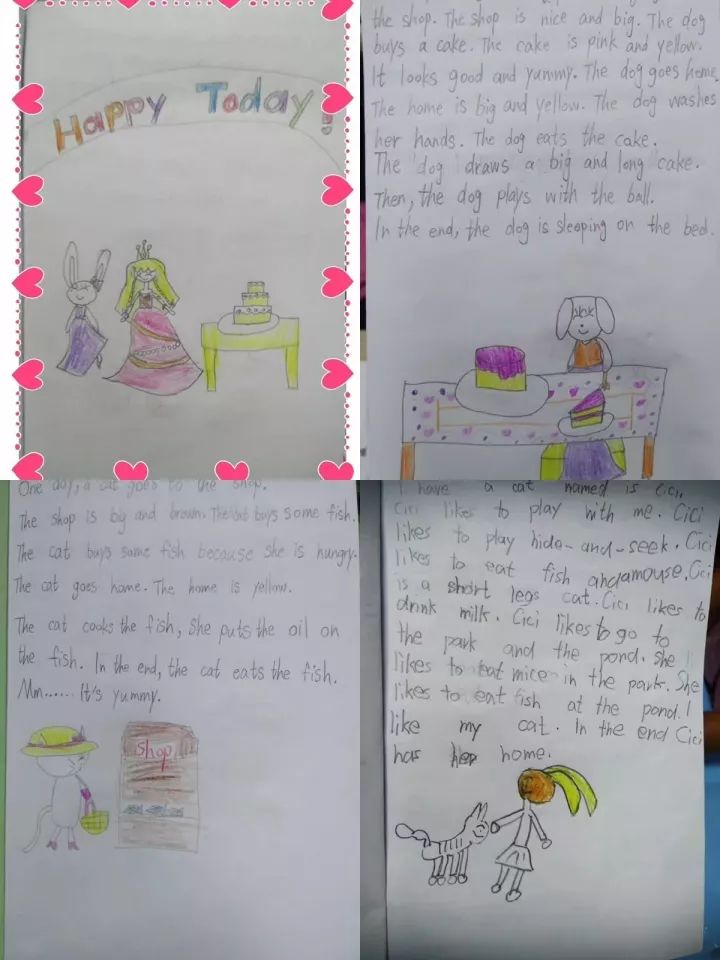 Happy Today!
the shop. The shop is nice and big. The dog
buys a cake. The cake is pink and yellow.
It looks good and yummy. The dog goes home.
The home is big and yellow. The dog washes
her hands. The dog eats the cake.
The dog draws a big and long cake.
Then, the dog plays with the ball.
In the end, the dog is sleeping on the bed.
One day, a cat goes to the shop.
The shop is big and brown. The cat buys some fish.
The cat buys some fish because she is hungry.
The cat goes home. The home is yellow.
The cat cooks the fish, She puts the oil on
the fish. In the end, the cat eats the fish.
Mm...... It's yummy.
shop
I have a cat named is Cici.
Cici likes to play with me. Cici
likes to play hide-and-seek. Cici
likes to eat fish andamouse. Cici
is a short legs cat. Cici likes to
drink milk. Cici likes to go to
the park and the pond. She
likes to eat mice in the park. She
likes to eat fish at the pond. I
like my cat. In the end Cici
has her home.